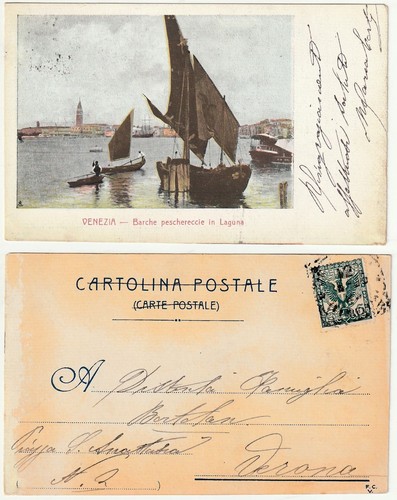 VENEZIA — Barche peschereccie in Laguna
Ringraziamenti
affettuosi saluti
CARTOLINA POSTALE
(CARTE POSTALE)
A Distinta Famiglia
Bertolan
N. 2
Verona
F. C.
V.